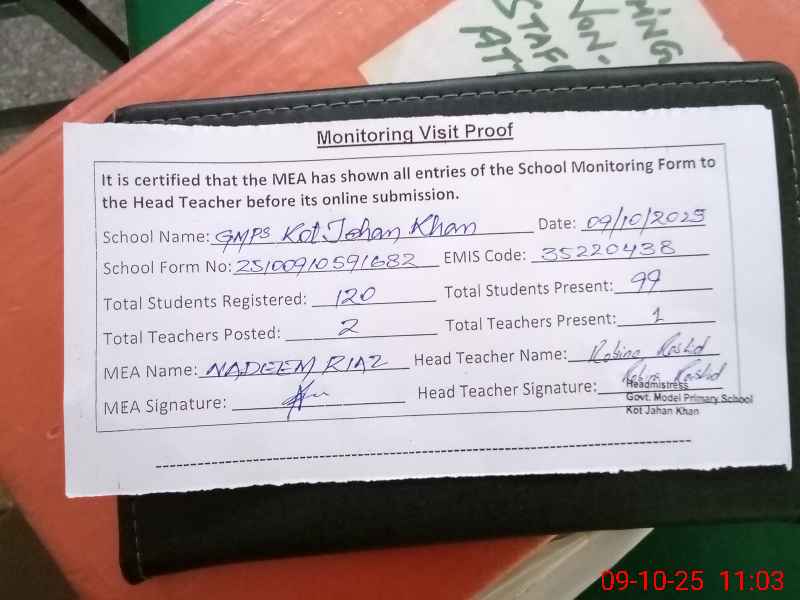 MING
NON-
STAFF
AT
Monitoring Visit Proof
It is certified that the MEA has shown all entries of the School Monitoring Form to
the Head Teacher before its online submission.
School Name: GMPS Kot Jahan Khan Date: 09/10/2025
School Form No: 25100910591682 EMIS Code: 35220438
Total Students Registered: 120 Total Students Present: 99
Total Teachers Posted: 2 Total Teachers Present: 1
MEA Name: NADEEM RIAZ Head Teacher Name: Robina Rashid
MEA Signature: Head Teacher Signature: Robina Rashid
Headmistress
Govt. Model Primary School
Kot Jahan Khan
09-10-25 11:03